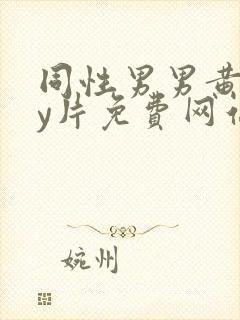 同性男男黄
y片免费网
婉州